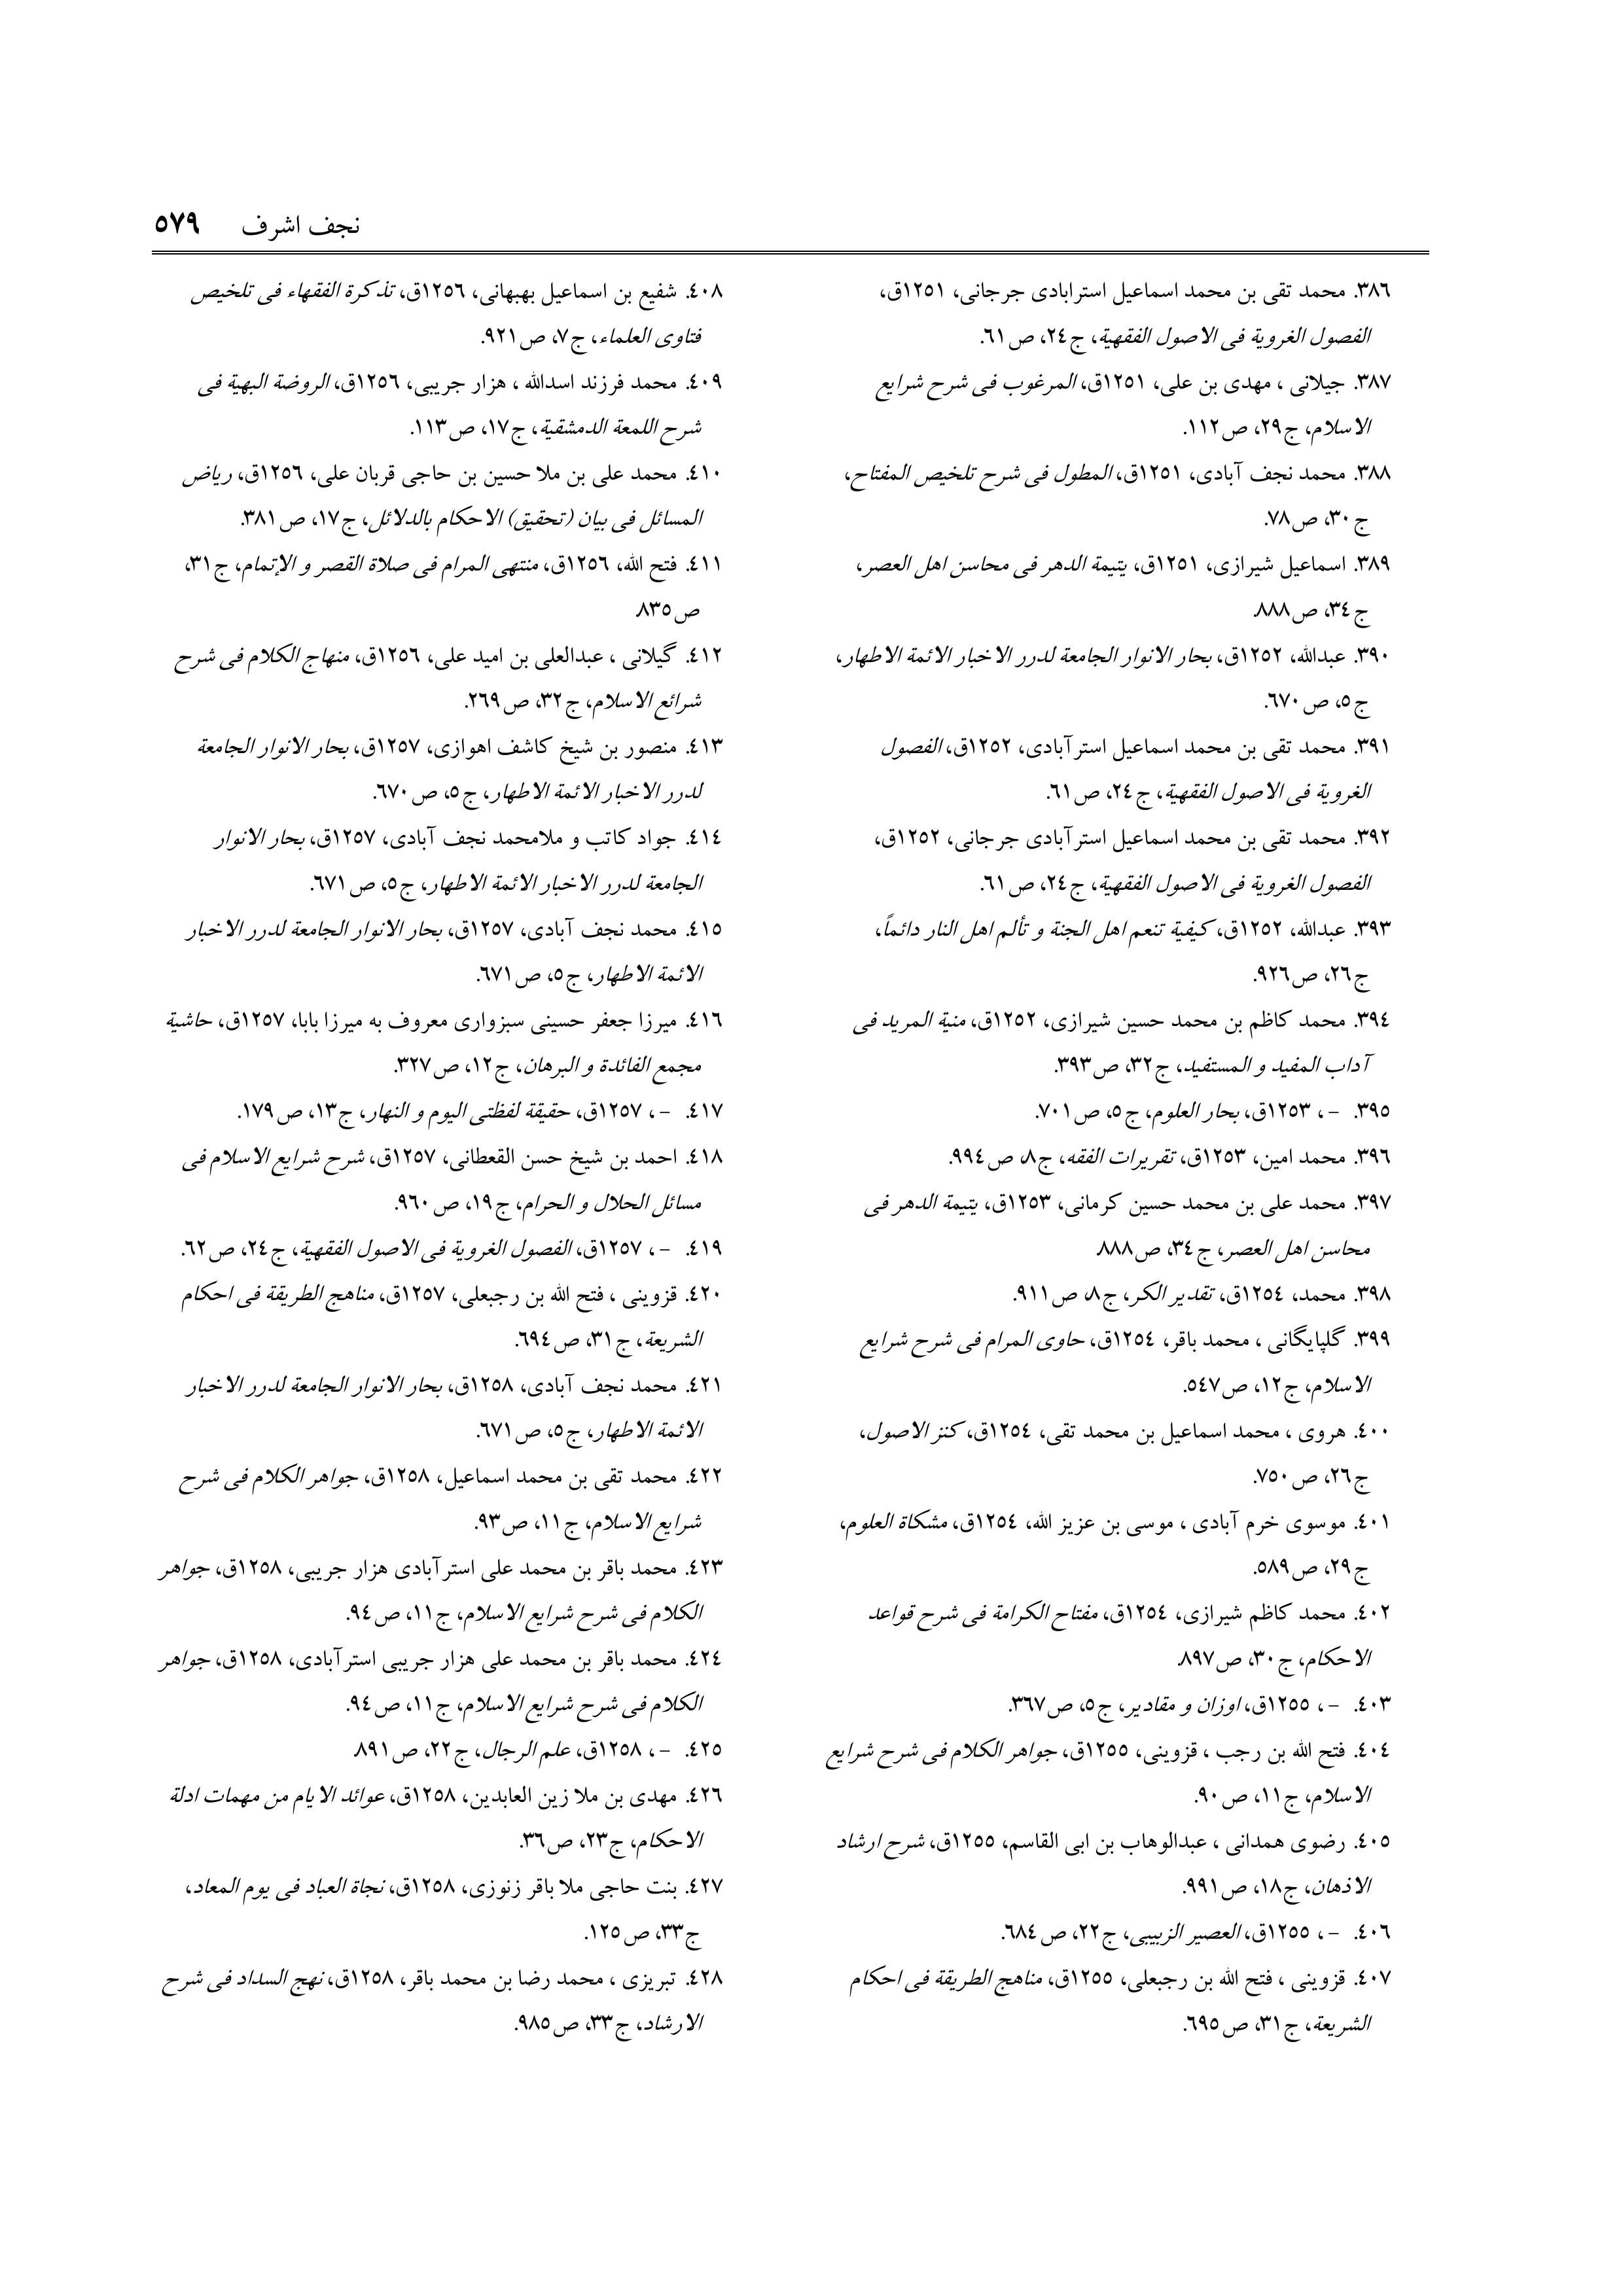 نجف اشرف ٥٧٩
٣٨٦. محمد تقی بن محمد اسماعیل استرابادی جرجانی، ١٢٥١ق،
الفصول الغرویة فی الاصول الفقهیة، ج٢٤، ص٦١.
٣٨٧. جیلانی ، مهدی بن علی، ١٢٥١ق، المرغوب فی شرح شرایع
الاسلام، ج٢٩، ص١١٢.
٣٨٨. محمد نجف آبادی، ١٢٥١ق، المطول فی شرح تلخیص المفتاح،
ج٣٠، ص٧٨.
٣٨٩. اسماعیل شیرازی، ١٢٥١ق، یتیمة الدهر فی محاسن اهل العصر،
ج٣٤، ص٨٨٨.
٣٩٠. عبدالله، ١٢٥٢ق، بحار الانوار الجامعة لدرر الاخبار الائمة الاطهار،
ج٥، ص٦٧٠.
٣٩١. محمد تقی بن محمد اسماعیل استرآبادی، ١٢٥٢ق، الفصول
الغرویة فی الاصول الفقهیة، ج٢٤، ص٦١.
٣٩٢. محمد تقی بن محمد اسماعیل استرآبادی جرجانی، ١٢٥٢ق،
الفصول الغرویة فی الاصول الفقهیة، ج٢٤، ص٦١.
٣٩٣. عبدالله، ١٢٥٢ق، کیفیة تنعم اهل الجنة و تألم اهل النار دائماً،
ج٢٦، ص٩٢٦.
٣٩٤. محمد کاظم بن محمد حسین شیرازی، ١٢٥٢ق، منیة المرید فی
آداب المفید و المستفید، ج٣٢، ص٣٩٣.
٣٩٥. -، ١٢٥٣ق، بحار العلوم، ج٥، ص٧٠١.
٣٩٦. محمد امین، ١٢٥٣ق، تقریرات الفقه، ج٨، ص٩٩٤.
٣٩٧. محمد علی بن محمد حسین کرمانی، ١٢٥٣ق، یتیمة الدهر فی
محاسن اهل العصر، ج٣٤، ص٨٨٨.
٣٩٨. محمد، ١٢٥٤ق، تقدیر الکر، ج٨، ص٩١١.
٣٩٩. گلپایگانی ، محمد باقر، ١٢٥٤ق، حاوی المرام فی شرح شرایع
الاسلام، ج١٢، ص٥٤٧.
٤٠٠. هروی ، محمد اسماعیل بن محمد تقی، ١٢٥٤ق، کنز الاصول،
ج٢٦، ص٧٥٠.
٤٠١. موسوی خرم آبادی ، موسی بن عزیز الله، ١٢٥٤ق، مشکاة العلوم،
ج٢٩، ص٥٨٩.
٤٠٢. محمد کاظم شیرازی، ١٢٥٤ق، مفتاح الکرامة فی شرح قواعد
الاحکام، ج٣٠، ص٨٩٧.
٤٠٣. -، ١٢٥٥ق، اوزان و مقادیر، ج٥، ص٣٦٧.
٤٠٤. فتح الله بن رجب ، قزوینی، ١٢٥٥ق، جواهر الکلام فی شرح شرایع
الاسلام، ج١١، ص٩٠.
٤٠٥. رضوی همدانی ، عبدالوهاب بن ابی القاسم، ١٢٥٥ق، شرح ارشاد
الاذهان، ج١٨، ص٩٩١.
٤٠٦. -، ١٢٥٥ق، العصیر الزبیبی، ج٢٢، ص٦٨٤.
٤٠٧. قزوینی ، فتح الله بن رجبعلی، ١٢٥٥ق، مناهج الطریقة فی احکام
الشریعة، ج٣١، ص٦٩٥.
٤٠٨. شفیع بن اسماعیل بهبهانی، ١٢٥٦ق، تذکرة الفقهاء فی تلخیص
فتاوی العلماء، ج٧، ص٩٢١.
٤٠٩. محمد فرزند اسدالله ، هزار جریبی، ١٢٥٦ق، الروضة البهیة فی
شرح اللمعة الدمشقیة، ج١٧، ص١١٣.
٤١٠. محمد علی بن ملا حسین بن حاجی قربان علی، ١٢٥٦ق، ریاض
المسائل فی بیان (تحقیق) الاحکام بالدلائل، ج١٧، ص٣٨١.
٤١١. فتح الله، ١٢٥٦ق، منتهی المرام فی صلاة القصر و الإتمام، ج٣١،
ص٨٣٥.
٤١٢. گیلانی ، عبدالعلی بن امید علی، ١٢٥٦ق، منهاج الکلام فی شرح
شرائع الاسلام، ج٣٢، ص٢٦٩.
٤١٣. منصور بن شیخ کاشف اهوازی، ١٢٥٧ق، بحار الانوار الجامعة
لدرر الاخبار الائمة الاطهار، ج٥، ص٦٧٠.
٤١٤. جواد کاتب و ملامحمد نجف آبادی، ١٢٥٧ق، بحار الانوار
الجامعة لدرر الاخبار الائمة الاطهار، ج٥، ص٦٧١.
٤١٥. محمد نجف آبادی، ١٢٥٧ق، بحار الانوار الجامعة لدرر الاخبار
الائمة الاطهار، ج٥، ص٦٧١.
٤١٦. میرزا جعفر حسینی سبزواری معروف به میرزا بابا، ١٢٥٧ق، حاشیة
مجمع الفائدة و البرهان، ج١٢، ص٣٢٧.
٤١٧. -، ١٢٥٧ق، حقیقة لفظتی الیوم و النهار، ج١٣، ص١٧٩.
٤١٨. احمد بن شیخ حسن القعطانی، ١٢٥٧ق، شرح شرایع الاسلام فی
مسائل الحلال و الحرام، ج١٩، ص٩٦٠.
٤١٩. -، ١٢٥٧ق، الفصول الغرویة فی الاصول الفقهیة، ج٢٤، ص٦٢.
٤٢٠. قزوینی ، فتح الله بن رجبعلی، ١٢٥٧ق، مناهج الطریقة فی احکام
الشریعة، ج٣١، ص٦٩٤.
٤٢١. محمد نجف آبادی، ١٢٥٨ق، بحار الانوار الجامعة لدرر الاخبار
الائمة الاطهار، ج٥، ص٦٧١.
٤٢٢. محمد تقی بن محمد اسماعیل، ١٢٥٨ق، جواهر الکلام فی شرح
شرایع الاسلام، ج١١، ص٩٣.
٤٢٣. محمد باقر بن محمد علی استرآبادی هزار جریبی، ١٢٥٨ق، جواهر
الکلام فی شرح شرایع الاسلام، ج١١، ص٩٤.
٤٢٤. محمد باقر بن محمد علی هزار جریبی استرآبادی، ١٢٥٨ق، جواهر
الکلام فی شرح شرایع الاسلام، ج١١، ص٩٤.
٤٢٥. -، ١٢٥٨ق، علم الرجال، ج٢٢، ص٨٩١.
٤٢٦. مهدی بن ملا زین العابدین، ١٢٥٨ق، عوائد الایام من مهمات ادلة
الاحکام، ج٢٣، ص٣٦.
٤٢٧. بنت حاجی ملا باقر زنوزی، ١٢٥٨ق، نجاة العباد فی یوم المعاد،
ج٣٣، ص١٢٥.
٤٢٨. تبریزی ، محمد رضا بن محمد باقر، ١٢٥٨ق، نهج السداد فی شرح
الارشاد، ج٣٣، ص٩٨٥.